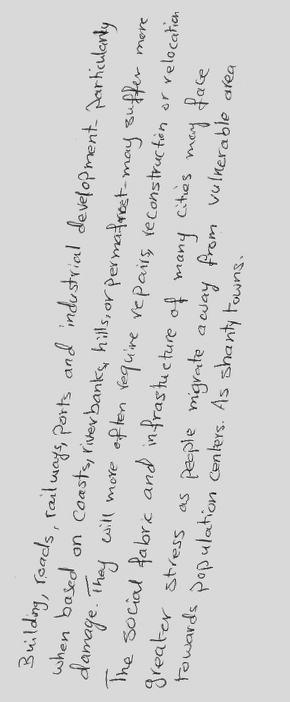 Building, roads, railways, ports and industrial development - particularly
when based on coasts, riverbanks, hills, or permafrost - may suffer more
damage. They will more often require repairs, reconstruction or relocation
The social fabric and infrastucture of many cities may face
greater stress as people migrate away from vulnerable area
towards population centers. As shanty towns.